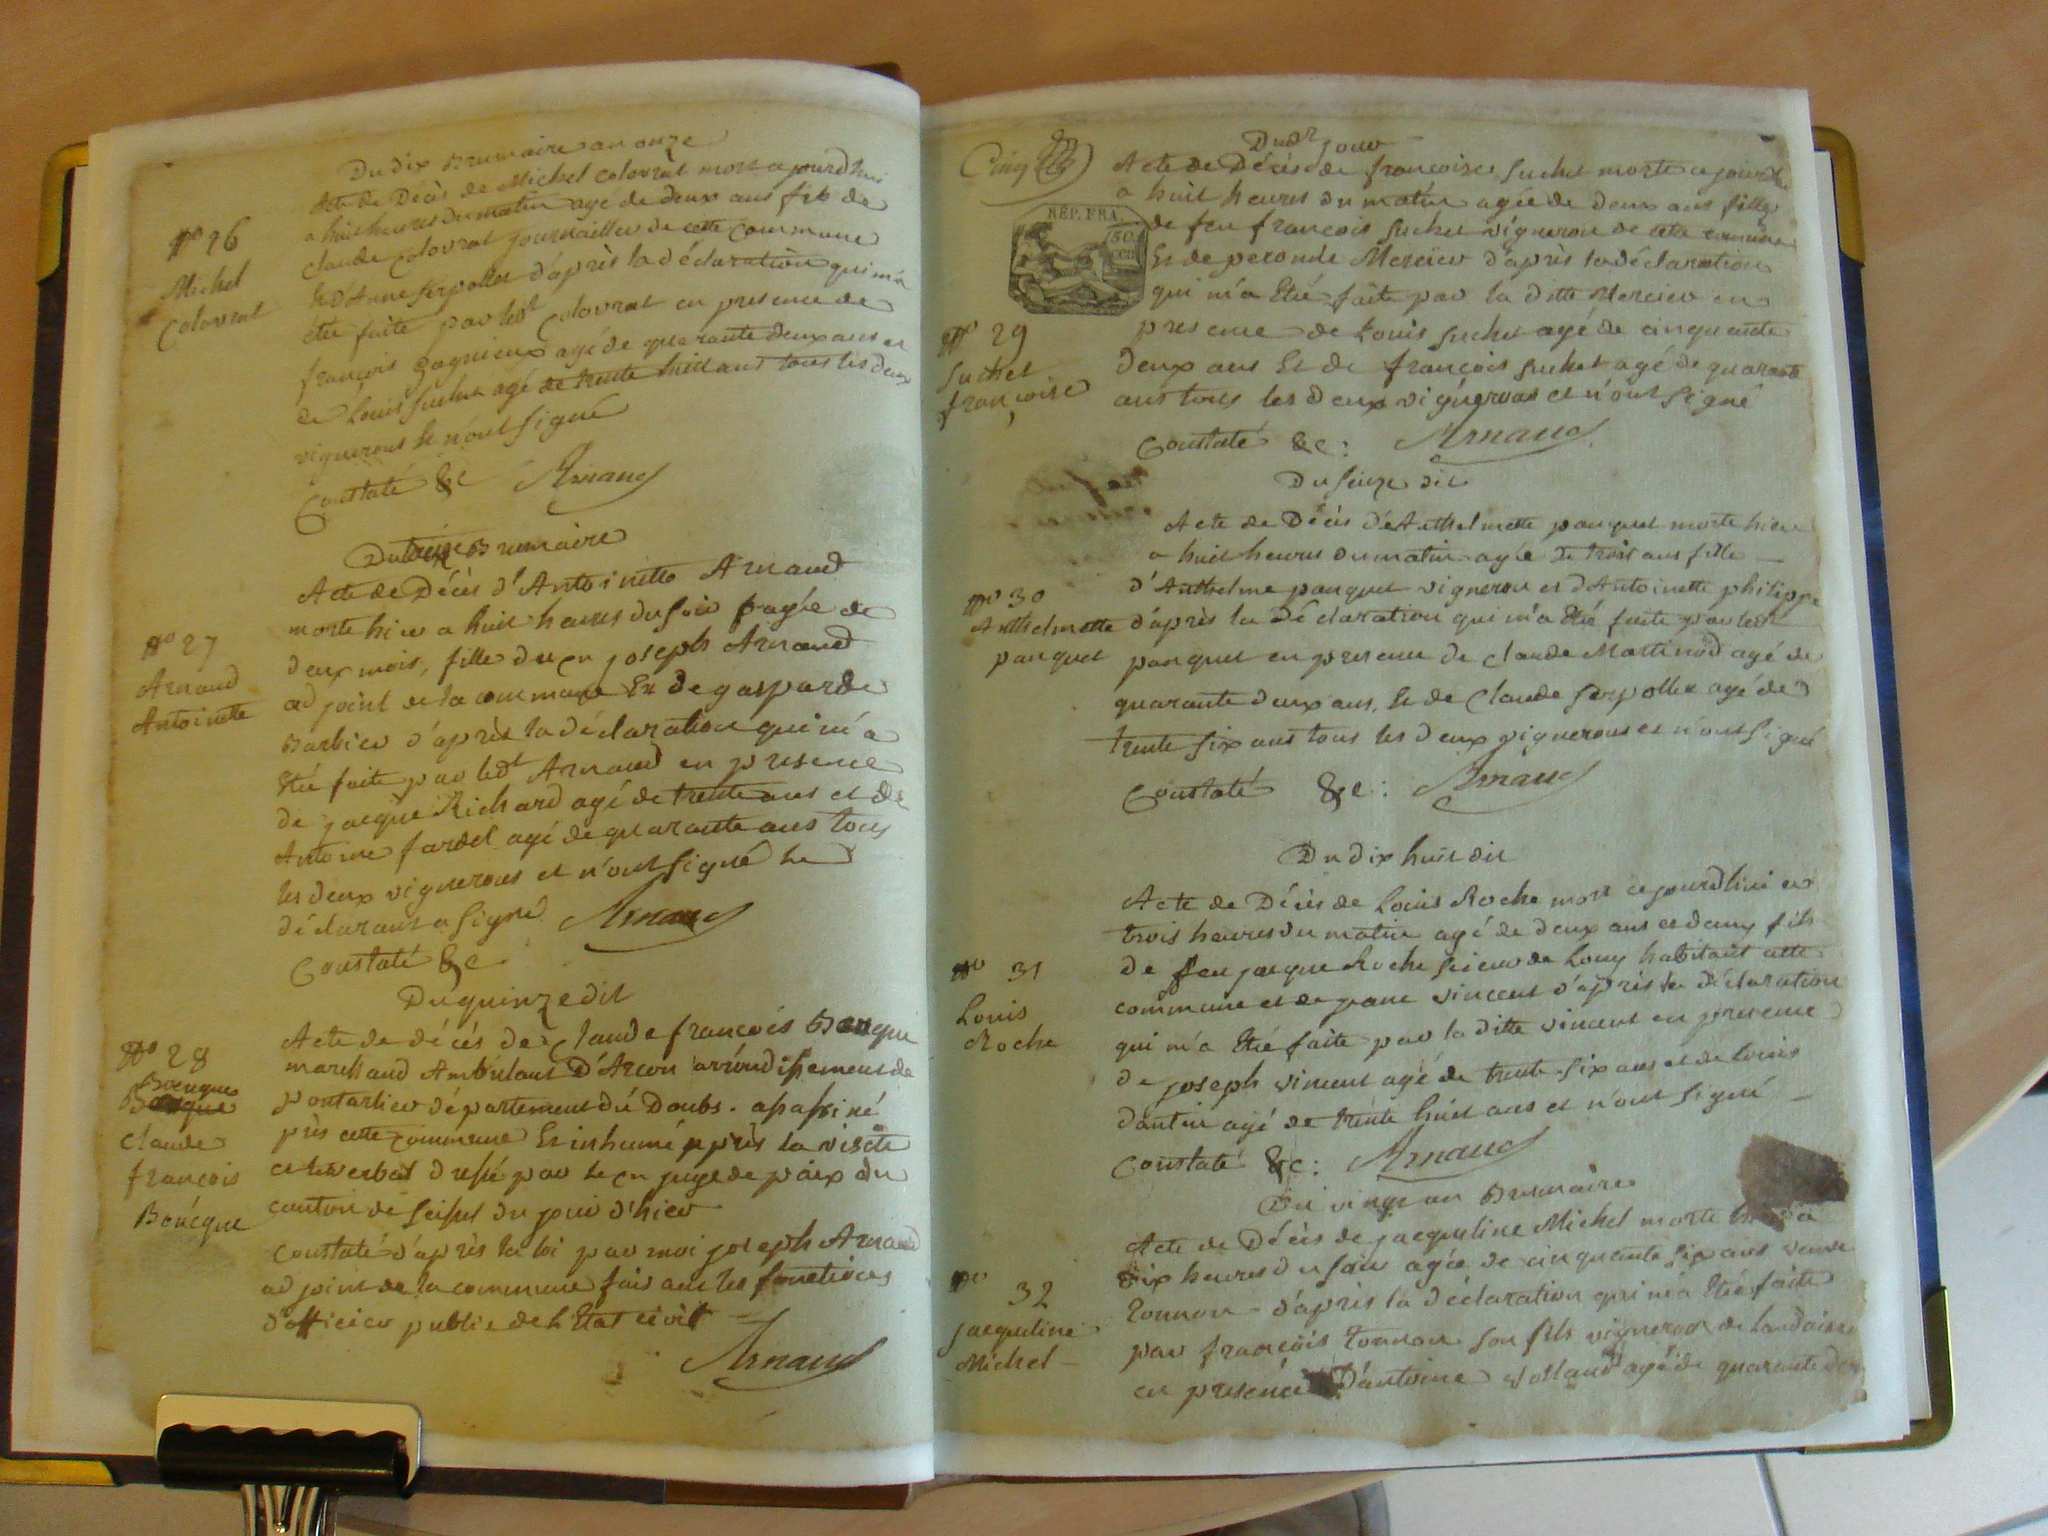 Du dix Brumaire an onze
Acte de Décès de Michel Colovrat mort ajourdhui
a huit heures du matin agé de deux ans fils de
Claude Colovrat journaillier de cette Commune
Et d'Anne Serpollet d'après la déclaration qui m'a
été faite par ledt Colovrat en presence de
françois gagnieux agé de quarante deux ans et
de Louis Suchet agé de trente huit ans tous les deux
vignerons Et n'ont Signé
Constaté &c Arnaud
N° 26
Michel
Colovrat
Du treize Brumaire
Acte de Décès d'Antoinette Arnaud
morte hier a huit heures du Soir agée de
deux mois, fille du Cn joseph Arnaud
adjoint de la commune Et de gasparde
Barbier d'après la déclaration qui m'a
Eté faite par ledt Arnaud en presence
de jacque Richard agé de trente ans et de
Antoine fardel agé de quarante ans tous
les deux vignerons et n'ont Signé Le
déclarant a Signé Arnaud
Constaté &c
N° 27
Arnaud
Antoinette
Du quinze dit
Acte de décés de Claude françois
marchand Ambulant D'Arcon arrondissement de
pontarlier département du Doubs. assassiné
près cette Commune Et inhumé après la visite
et verbal dressé par le Cn juge de paix du
canton de Seissel du jour d'hier
Constaté d'après la loi par moi joseph Arnaud
adjoint de la commune fais ant les fonctions
d'officier public de l'Etat civil
Arnaud
N° 28
Boucque
Claude
françois
Boucque
Cinq
Du dt jour
Acte de Décès de françoise Suchet morte ce jourdhui
a huit heures du matin agée de deux ans fille
de feu françois Suchet vigneron de cette commune
Et de peronde Mercier d'après la déclaration
qui m'a Eté faite par la ditte Mercier en
presence de Louis Suchet agé de cinquante
deux ans Et de françois Suchet agé de quarante
ans tous les deux vignerons et n'ont Signé
Constaté &c: Arnaud
RÉP. FRA.
50
CEN
N° 29
Suchet
françoise
Du Seize dit
Acte de Décès d'Anthelmette panquet morte hier
a huit heures du matin agée de trois ans fille
d'Anthelme panquet vigneron et d'Antoinette philippe
d'après la Déclaration qui m'a Eté faite par ledt
panquet en presence de Claude Martinod agé de
quarante deux ans, Et de Claude Serpollet agé de
trente six ans tous les deux vignerons et n'ont Signé
Constaté &c: Arnaud
N° 30
Anthelmette
panquet
Du dix huit dit
Acte de Décès de Louis Roche mort ce jourdhui a
trois heures du matin agé de deux ans et demy fils
de feu jacque Roche Scieur de Long habitant cette
commune et de jeane vincent d'après la déclaration
qui m'a Eté faite par la ditte vincent en presence
de joseph vincent agé de trente-six ans et de Louis
dantin agé de trente huit ans et n'ont Signé
Constaté &c: Arnaud
N° 31
Louis
Roche
Du vingt un Brumaire
Acte de Décès de jacqueline Michel morte hier a
dix heures du Soir agée de cinquante six ans veuve
tonnon d'après la déclaration qui m'a Eté faite
par françois tonnon Son fils vigneron de landaise
en presence d'antoine vollaud agé de quarante deux
N° 32
jacqueline
Michel